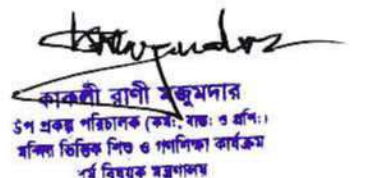 কাকলী রাণী মজুমদার
উপ প্রকল্প পরিচালক (কর্ম:, বাস্ত: ও প্রশি:)
মন্দির ভিত্তিক শিশু ও গণশিক্ষা কার্যক্রম
ধর্ম বিষয়ক মন্ত্রণালয়